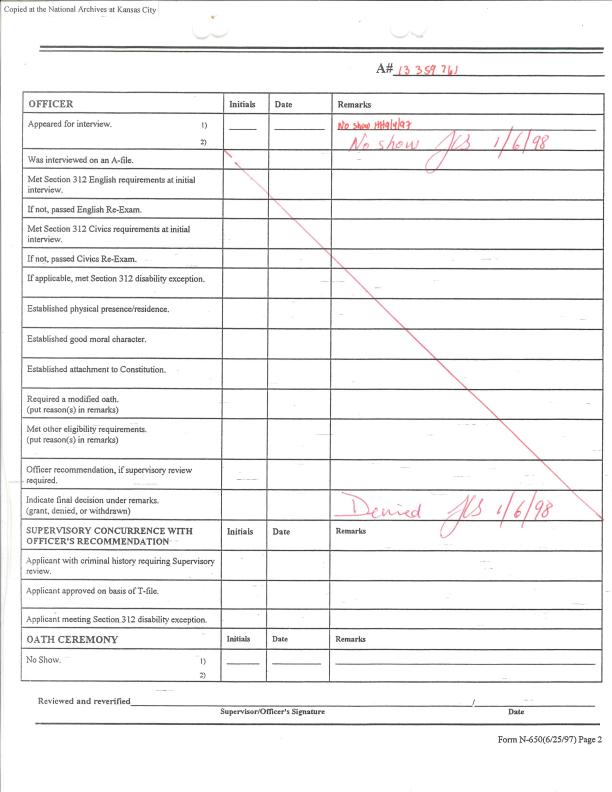 Copied at the National Archives at Kansas City
A# 13 359 761
OFFICER Initials Date Remarks
Appeared for interview. 1) No show HH9/9/97
2) No show JCS 1/6/98
Was interviewed on an A-file.
Met Section 312 English requirements at initial
interview.
If not, passed English Re-Exam.
Met Section 312 Civics requirements at initial
interview.
If not, passed Civics Re-Exam.
If applicable, met Section 312 disability exception.
Established physical presence/residence.
Established good moral character.
Established attachment to Constitution.
Required a modified oath.
(put reason(s) in remarks)
Met other eligibility requirements.
(put reason(s) in remarks)
Officer recommendation, if supervisory review
required.
Indicate final decision under remarks.
(grant, denied, or withdrawn) Denied JCS 1/6/98
SUPERVISORY CONCURRENCE WITH
OFFICER'S RECOMMENDATION Initials Date Remarks
Applicant with criminal history requiring Supervisory
review.
Applicant approved on basis of T-file.
Applicant meeting Section 312 disability exception.
OATH CEREMONY Initials Date Remarks
No Show. 1)
2)
Reviewed and reverified /
Supervisor/Officer's Signature Date
Form N-650(6/25/97) Page 2